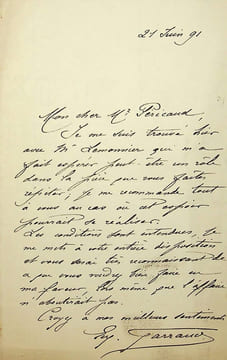 21 Juin 91
Mon cher Mr Péricaud,
Je me suis trouvé hier
avec Mr Lemonnier qui m'a
fait espérer peut-être un rôle
dans la pièce que vous faites
répéter, je me recommande tout
à vous au cas où cet espoir
pourrait se réaliser.
Les conditions sont entendues, je
me mets à votre entière disposition
et vous serai très reconnaissant de
ce que vous voudrez bien faire en
ma faveur, lors même que l'affaire
n'aboutirait pas.
Croyez à mes meilleurs sentiments
Garraud